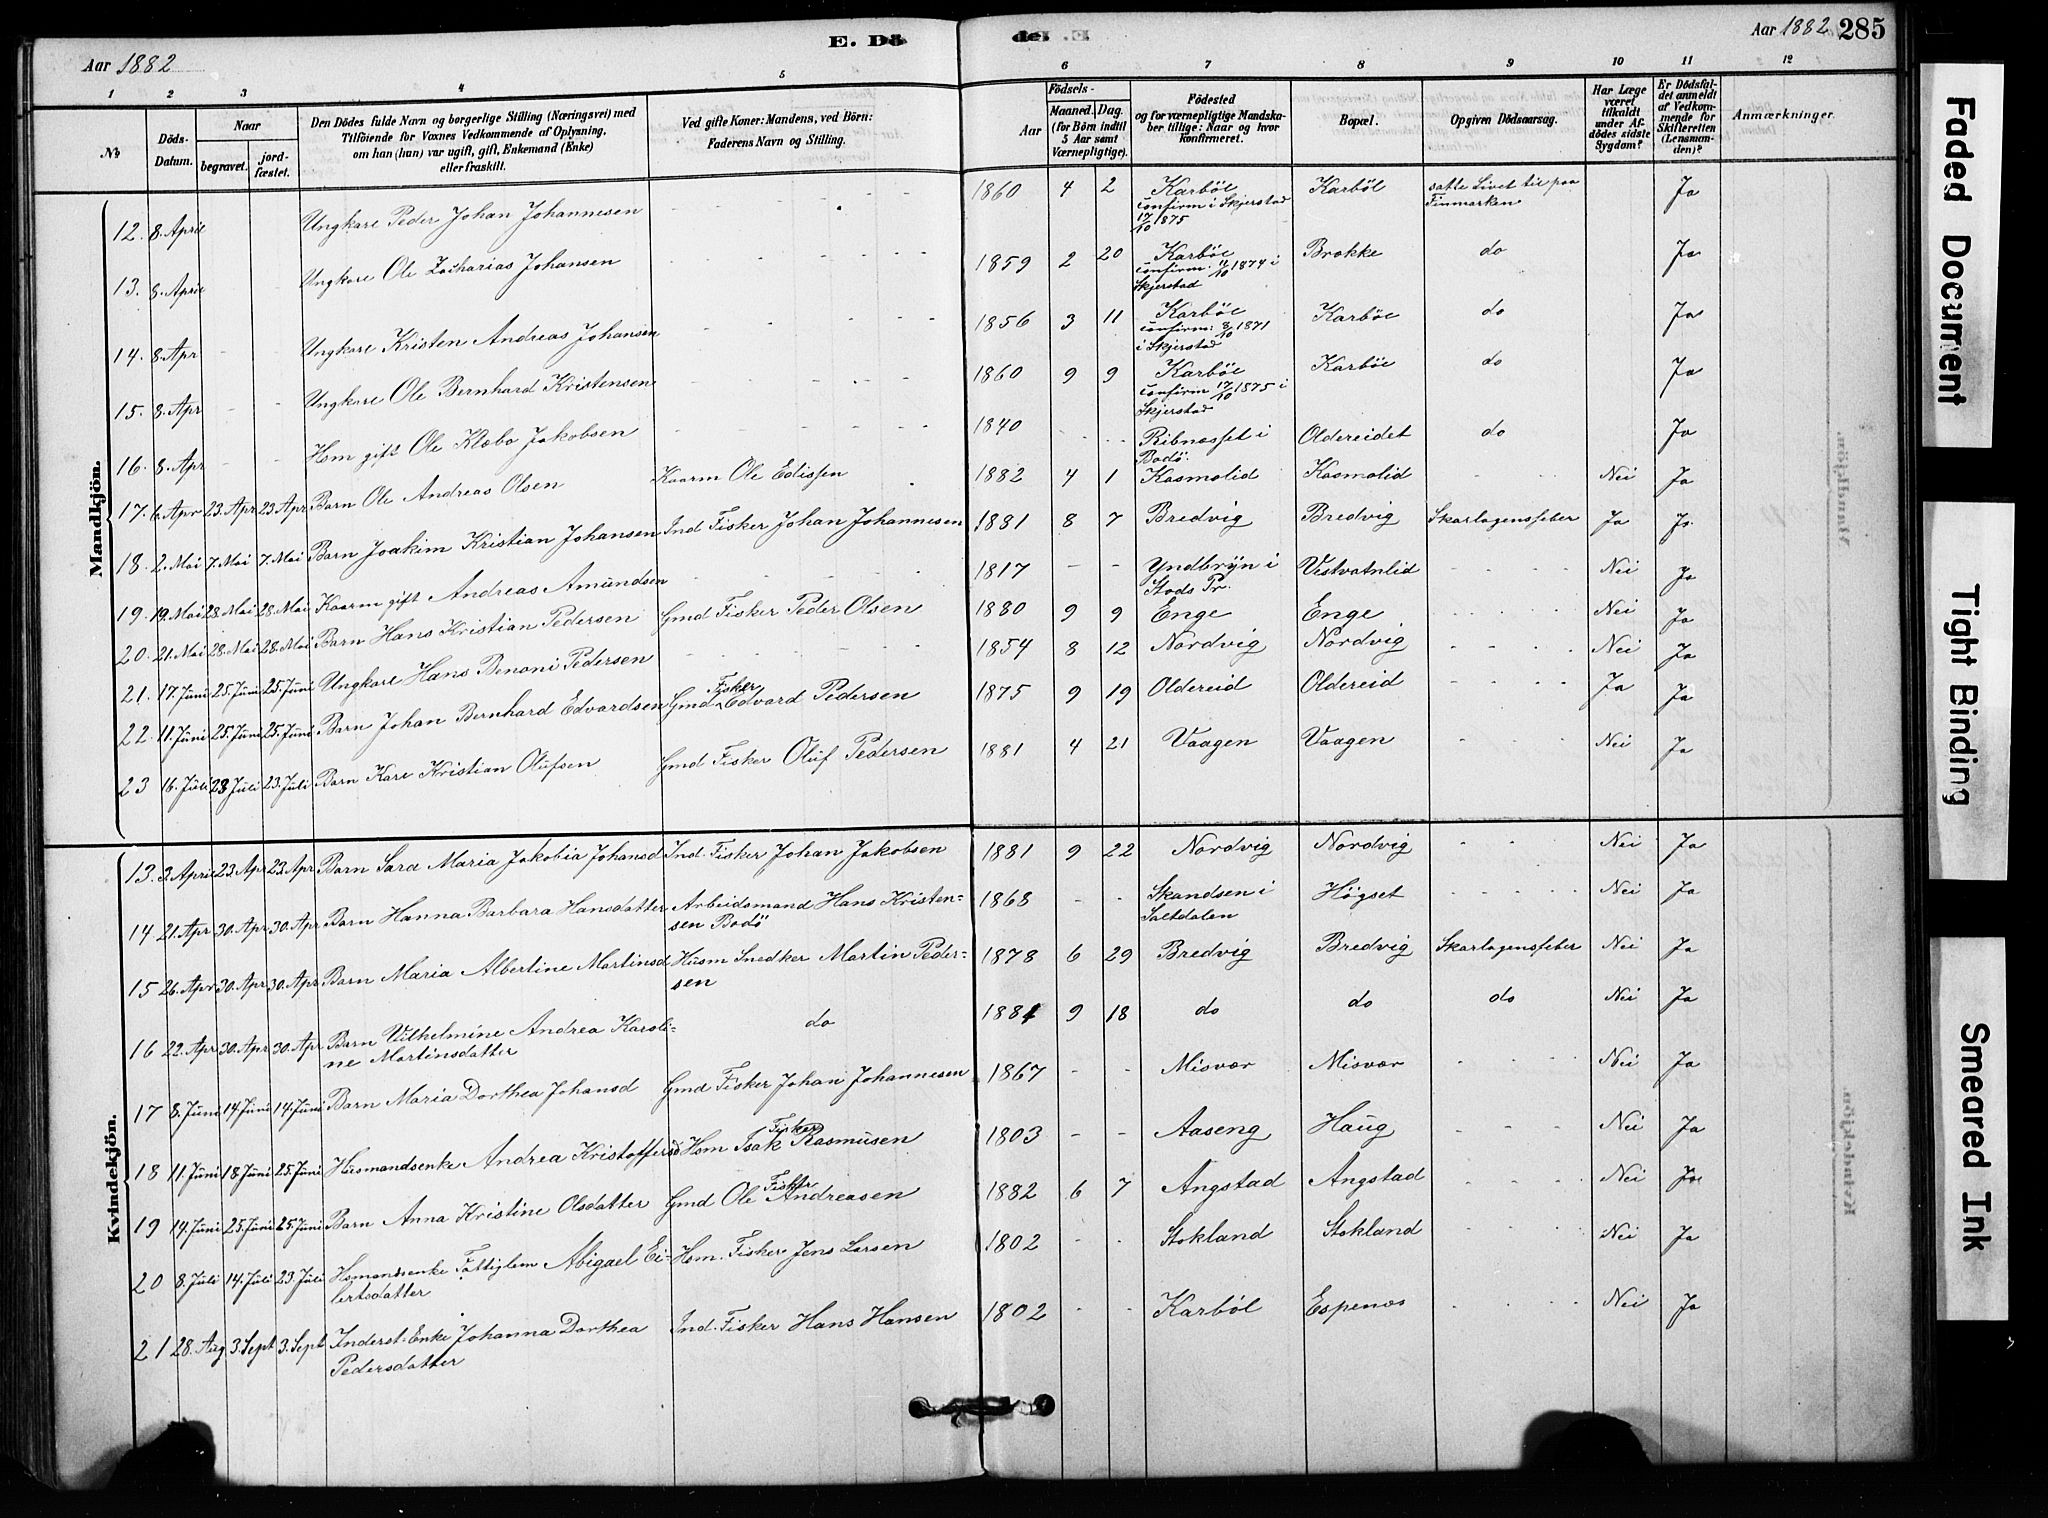 Aar 1882
E. Dö
de. E.
Aar 1882
285
1 2 3 4 5 6 7 8 9 10 11 12
No
Döds-Datum.
Naar
begravet.
jord-fæstet.
Den Dödes fulde Navn og borgerlige Stilling (Næringsvei) med
Tilföiende for Voxnes Vedkommende af Oplysning,
om han (hun) var ugift, gift, Enkemand (Enke)
eller fraskilt.
Ved gifte Koner: Mandens, ved Börn:
Faderens Navn og Stilling.
Födsels-
Aar
Maaned. Dag.
(for Börn indtil
5 Aar samt
Værnepligtige).
Födested
og for værnepligtige Mandska-
ber tillige: Naar og hvor
konfirmeret.
Bopæl.
Opgiven Dödsaarsag.
Har Læge
været
tilkaldt
under Af-
dödes sidste
Sygdom?
Er Dödsfal-
det anmeldt
af Vedkom-
mende for
Skifteretten
(Lensman-
den)?
Anmærkninger.
Mandkjön.
12. 8. April Ungkare Peder Johan Johannesen 1860 4 2 Karböl confirm i Skjerstad 17/10 1875 Karböl satte Livet til paa Finmarken Ja
13. 8. April Ungkare Ole Zacharias Johansen 1859 2 20 Karböl confirm. 11/10 1874 i Skjerstad Brække do Ja
14. 8. Apr Ungkare Kristen Andreas Johansen 1856 3 11 Karböl confirm: 8/10 1871 i Skjerstad Karböl do Ja
15. 8. Apr Ungkare Ole Bernhard Kristensen 1860 9 9 Karböl confirm 17/10 1875 i Skjerstad Karböl do Ja
16. 8. Apr Hsm gift Ole Klæbo Jakobsen 1840 Ribnæsset i Bodö. Oldereidet do Ja
17. 6. Apr 23. Apr 23 Apr Barn Ole Andreas Olsen Kaarm Ole Edissen 1882 4 1 Kosmolid Kosmolid Nei Ja
18. 2. Mai 7. Mai 7. Mai Barn Joakim Kristian Johansen Ind Fisker Johan Johannesen 1881 8 7 Bredvig Bredvig Skarlagensfeber Ja Ja
19. 19. Mai 28 Mai 28. Mai Kaarm gift Andreas Amundsen 1817 Yndbryn i Stods Pr. Vestvatnlid Nei Ja
20. 21. Mai 28. Mai 28. Mai Barn Hans Kristian Pedersen Gmd Fisker Peder Olsen 1880 9 9 Enge Enge Nei Ja
21. 17. Juni 25. Juni 25. Juni Ungkare Hans Benoni Pedersen 1854 8 12 Nordvig Nordvig Nei Ja
22. 11. Juni 25. Juni 25. Juni Barn Johan Bernhard Edvardsen Gmd Fisker Edvard Pedersen 1875 9 19 Oldereid Oldereid Ja Ja
23 16. Juli 23 Juli 23. Juli Barn Kare Kristian Olufsen Gmd Fisker Oluf Pedersen 1881 4 21 Vaagen Vaagen Nei Ja
Kvindekjön.
13. 2. April 23. Apr 23. Apr Barn Sara Maria Jakobia Johansd Ind. Fisker Johan Jakobsen 1881 9 22 Nordvig Nordvig Nei Ja
14 21. Apr 30. Apr 30. Apr Barn Hanna Barbara Hansdatter Arbeidsmand Hans Kristen-
sen Bodö 1868 Skandsen i Saltdalen Högset Nei Ja
15 26. Apr 30. Apr 30. Apr Barn Maria Albertine Martinsd Husm Snedker Martin Peder-
sen 1878 6 29 Bredvig Bredvig Skarlagensfeber Nei Ja
16 22. Apr 30. Apr 30. Apr Barn Vilhelmine Andrea Karoli-
ne Martinsdatter do 1881 9 18 do do do Nei Ja
17 8. Juni 14. Juni 14. Juni Barn Maria Dorthea Johansd Gmd Fisker Johan Johannesen 1867 Misvær Misvær Nei Ja
18 11. Juni 18. Juni 25. Juni Husmandsenke Andrea Kristoffersd Hsm Isak Fisker Rasmusen 1803 Aaseng Haug Nei Ja
19 14. Juni 25. Juni 25. Juni Barn Anna Kristine Olsdatter Gmd Ole Fisker Andreasen 1882 6 7 Angstad Angstad Nei Ja
20 8. Juli 14. Juli 23 Juli Hsmandsenke Fattiglem Abigael Ei-
lertsdatter Hsm. Fisker Jens Larsen 1802 Stokland Stokland Nei Ja
21 28. Aug 3. Sept 3. Sept Inderst. Enke Johanna Dorthea
Pedersdatter Ind. Fisker Hans Hansen 1802 Karböl Espenæs Nei Ja
Faded Document
Tight Binding
Smeared Ink